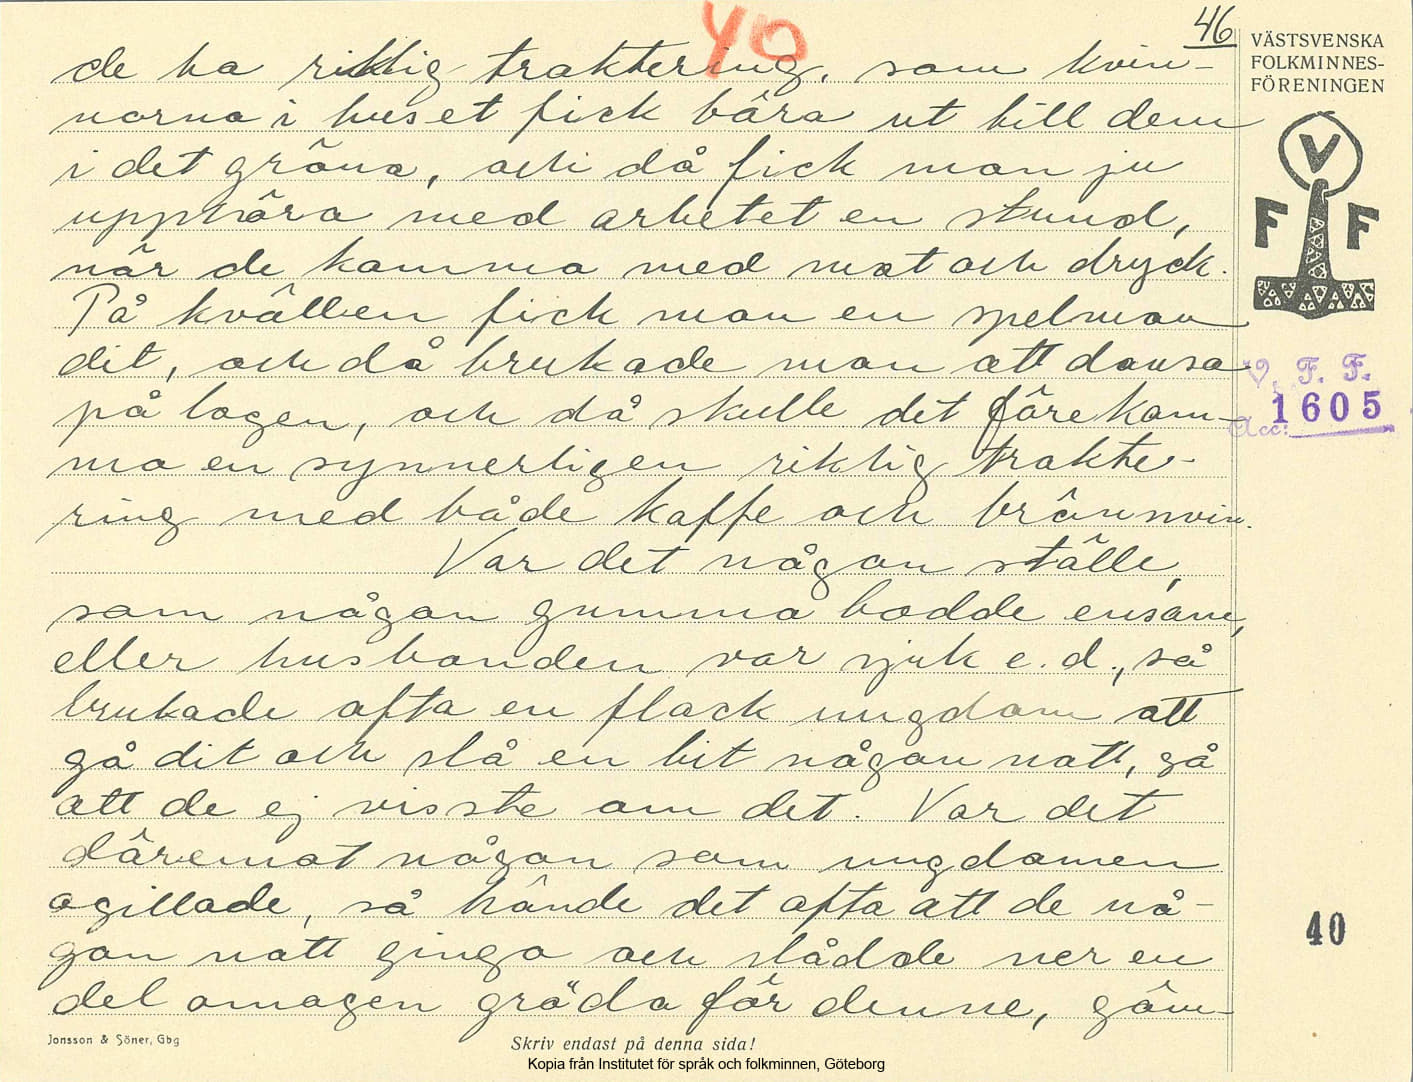 40
46
de ha riktig traktering, som kvin-
norna i huset fick bära ut till dem
i det gröna, och då fick man ju
upphöra med arbetet en stund,
när de komma med mat och dryck.
På kvällen fick man en spelman
dit, och då brukade man att dansa
på logen, och då skulle det förekom-
ma en synnerligen riktig trakte-
ring med både kaffe och brännvin.
Var det någon ställe,
som någon gumma bodde ensam,
eller husbonden var sjuk e. d., så
brukade ofta en flock ungdom att
gå dit och slå en bit någon natt, så
att de ej visste om det. Var det
däremot någon som ungdomen
ogillade, så hände det ofta att de nå-
gon natt gingo och slådde ner en
del omogen gröda för denne, göm-
VÄSTSVENSKA
FOLKMINNES-
FÖRENINGEN
V
F F
V. F. F.
Acc: 1605
40
Jonsson & Söner, Gbg
Skriv endast på denna sida!
Kopia från Institutet för språk och folkminnen, Göteborg